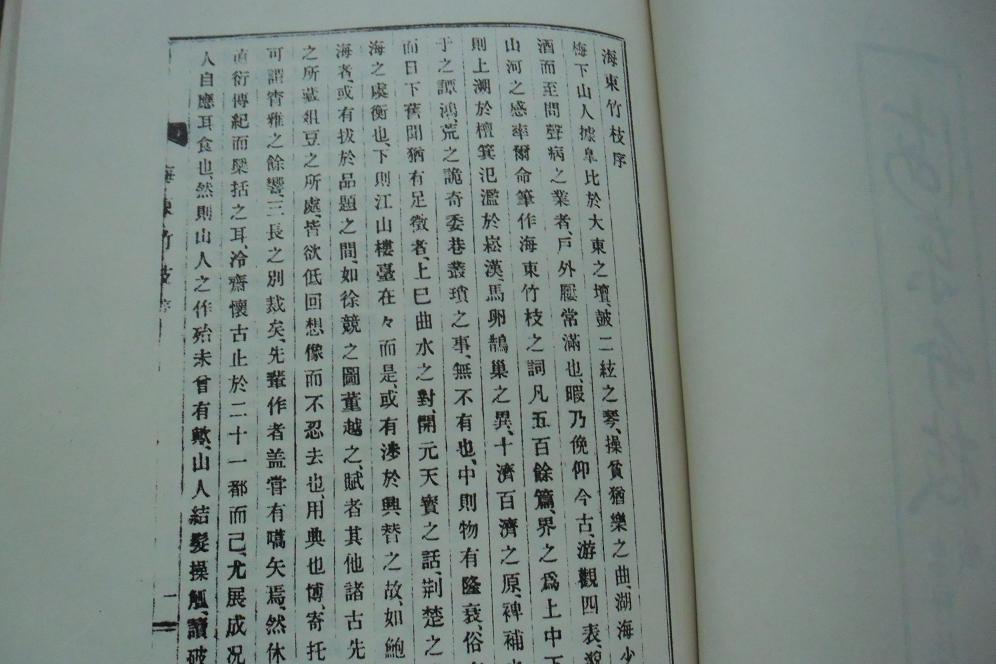 海東竹枝序
梅下山人據皐比於大東之壇、皷二絃之琴、操貧猶樂之曲、湖海少
酒而至問聲病之業者、戶外屨常滿也、暇乃俛仰今古、游觀四表、貌
山河之感率爾命筆作海東竹枝之詞凡五百餘篇、界之爲上中下
則上溯於檀箕氾濫於崧漢、馬卵鵲巢之異、十濟百濟之原、裨補
于之譚鴻荒之詭奇委巷叢瑣之事、無不有也、中則物有隆衰、俗
而日下舊聞猶有足徵者、上巳曲水之對、開元天寶之話、荆楚之
海之虞衡也、下則江山樓臺在々而是、或有涉於興替之故、如鮑
海者、或有拔於品題之間、如徐競之圖董越之賦者其他諸古先
之所藏俎豆之所處、皆欲低回想像而不忍去也、用典也博、寄托
可謂齊雅之餘響、三長之別裁矣、先輩作者盖嘗有嚆矢焉、然休
直衍傳紀而櫽括之耳、冷齋懷古止於二十一都而已、尤展成況
人自應耳食也、然則山人之作殆未曾有歟、山人結髮操觚、讀破
海東竹枝 序
一